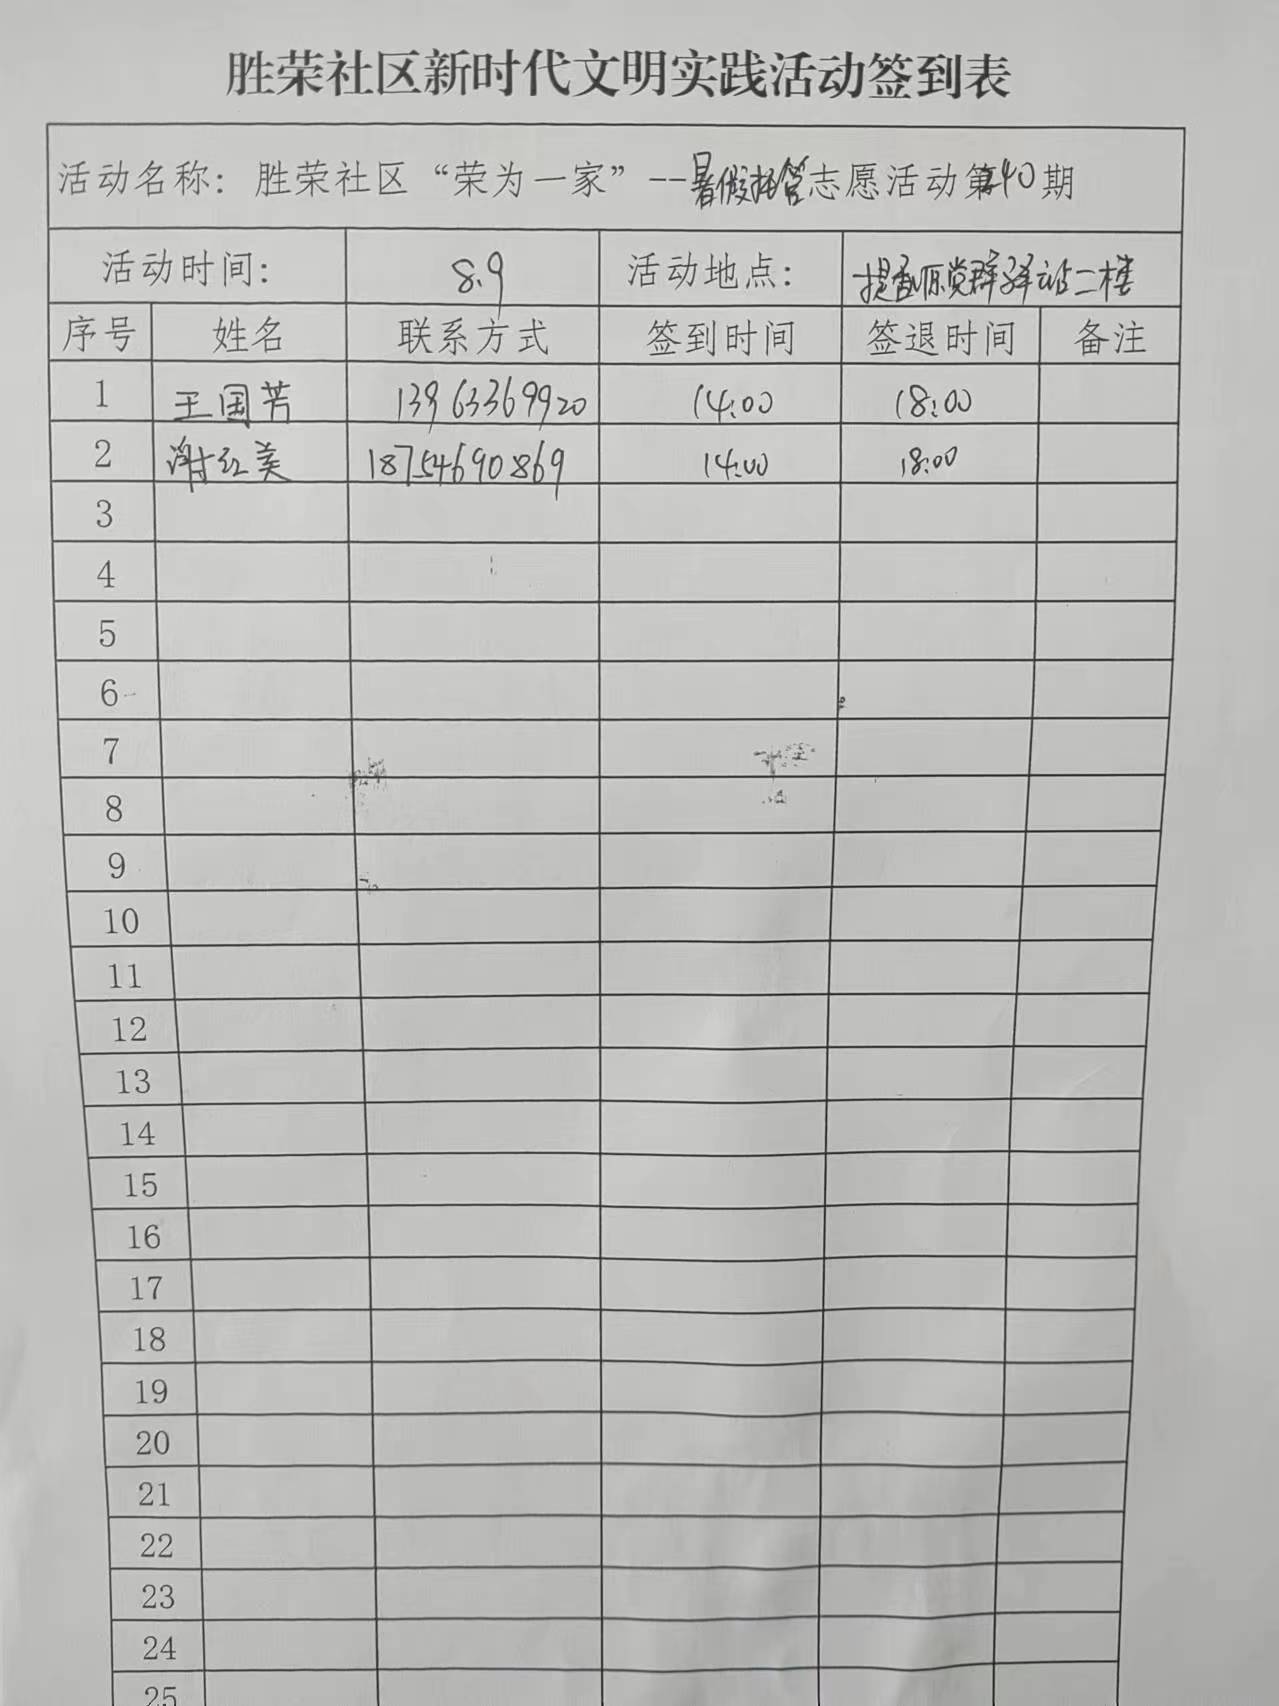 胜荣社区新时代文明实践活动签到表
活动名称：胜荣社区“荣为一家”--暑假托管志愿活动第240期
活动时间： 8.9 活动地点： 提香源党群驿站二楼
序号 姓名 联系方式 签到时间 签退时间 备注
1 王国芳 13963369920 14:00 18:00
2 谢红美 18754690869 14:00 18:00
3
4
5
6
7
8
9
10
11
12
13
14
15
16
17
18
19
20
21
22
23
24
25